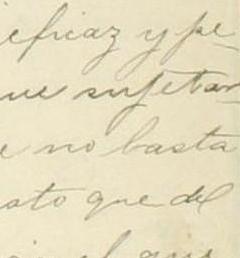 eficaz y pe-
ue sujetar-
e no basta
ato que del
el que